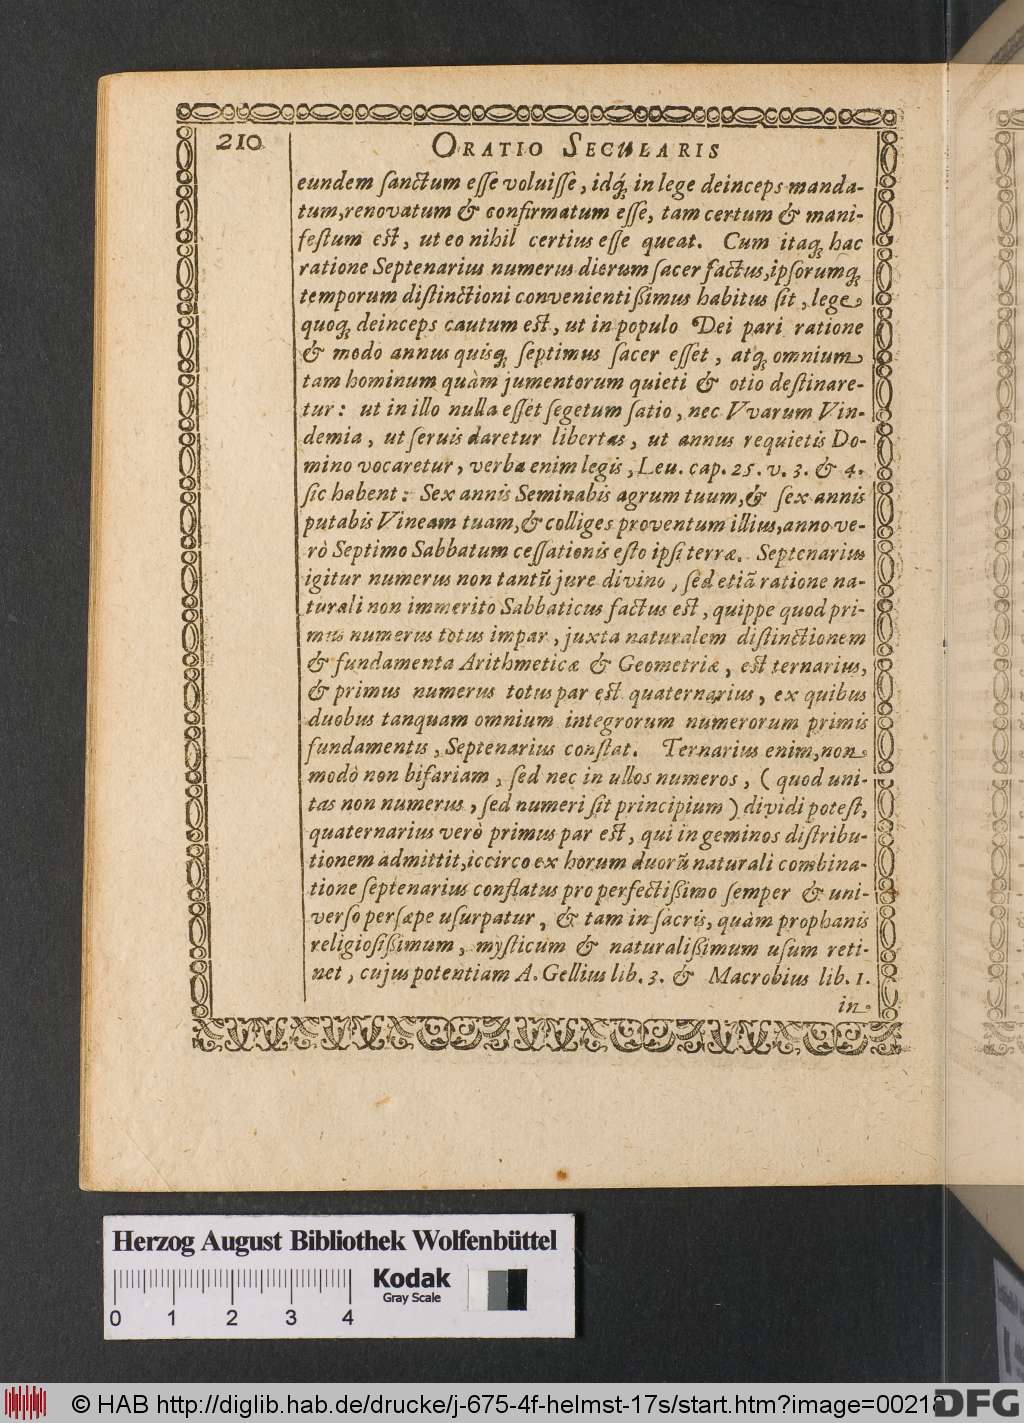 210
ORATIO SECULARIS
eundem ſanctum eſſe voluiſſe, idq́; in lege deinceps manda-
tum, renovatum & confirmatum eſſe, tam certum & mani-
feſtum eſt, ut eo nihil certius eſſe queat. Cum itaq; hac
ratione Septenarius numerus dierum ſacer factus, ipſorumq;
temporum diſtinctioni convenientiſſimus habitus ſit, lege
quoq; deinceps cautum eſt, ut in populo Dei pari ratione
& modo annus quisq; ſeptimus ſacer eſſet, atq; omnium
tam hominum quàm jumentorum quieti & otio deſtinare-
tur: ut in illo nulla eſſet ſegetum ſatio, nec Vvarum Vin-
demia, ut ſeruis daretur libertas, ut annus requietis Do-
mino vocaretur, verba enim legis, Leu. cap. 25. v. 3. & 4.
ſic habent: Sex annis Seminabis agrum tuum, & ſex annis
putabis Vineam tuam, & colliges proventum illius, anno ve-
rò Septimo Sabbatum ceſſationis eſto ipſi terræ. Septenarius
igitur numerus non tantũ jure divino, ſed etiã ratione na-
turali non immerito Sabbaticus factus eſt, quippe quod pri-
mus numerus totus impar, juxta naturalem diſtinctionem
& fundamenta Arithmeticæ & Geometriæ, eſt ternarius,
& primus numerus totus par eſt quaternarius, ex quibus
duobus tanquam omnium integrorum numerorum primis
fundamentis, Septenarius conſtat. Ternarius enim, non
modò non bifariam, ſed nec in ullos numeros, (quod uni-
tas non numerus, ſed numeri ſit principium) dividi poteſt,
quaternarius verò primus par eſt, qui in geminos diſtribu-
tionem admittit, iccirco ex horum duorũ naturali combina-
tione ſeptenarius conflatus pro perfectiſſimo ſemper & uni-
verſo perſæpe uſurpatur, & tam in ſacris, quàm prophanis
religioſiſſimum, myſticum & naturaliſſimum uſum reti-
net, cujus potentiam A. Gellius lib. 3. & Macrobius lib. 1.
in
Herzog August Bibliothek Wolfenbüttel
Kodak
Gray Scale
0 1 2 3 4
© HAB http://diglib.hab.de/drucke/j-675-4f-helmst-17s/start.htm?image=00218
DFG